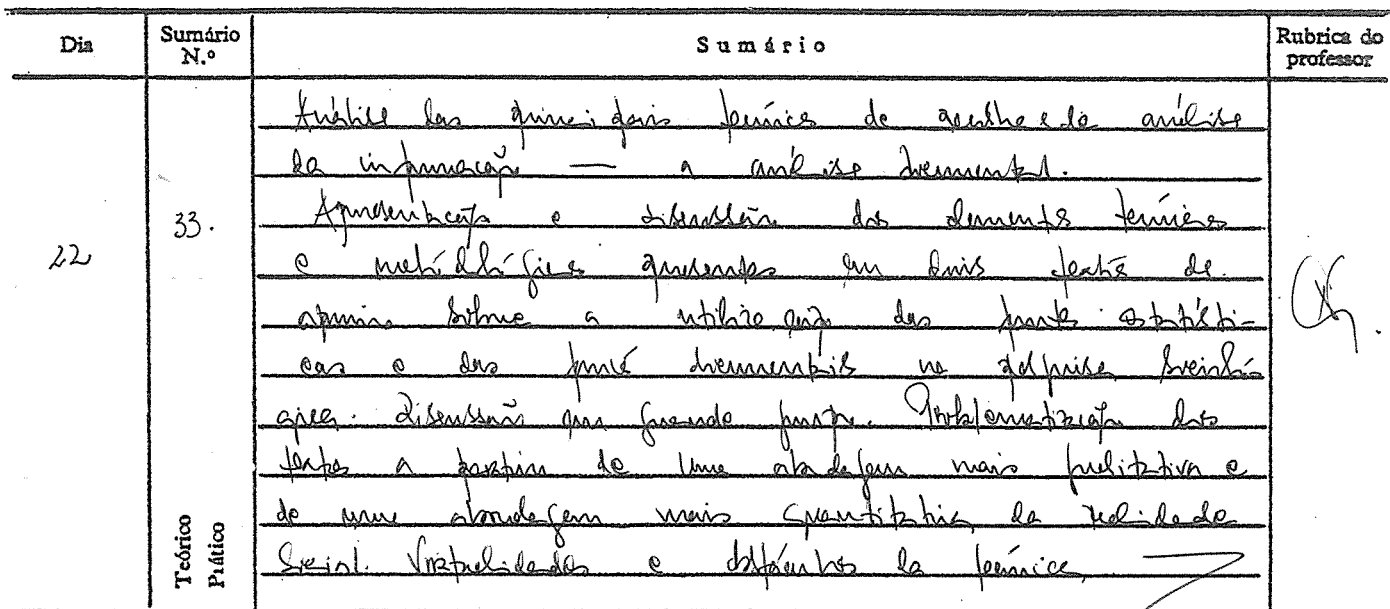 Dia
Sumário N.º
Sumário
Rubrica do professor
22
33.
Análise das principais técnicas de recolha e de análise
da informação — a análise documental.
Apresentação e discussão dos elementos técnicos
e metodológicos presentes em dois textos de
apoio sobre a utilização das fontes estatísti-
cas e das fontes documentais na pesquisa socioló-
gica. Discussão em grande grupo. Problematização dos
textos a partir de uma abordagem mais qualitativa e
de uma abordagem mais quantitativa da realidade
social. Virtualidades e da técnica
Teórico
Prático